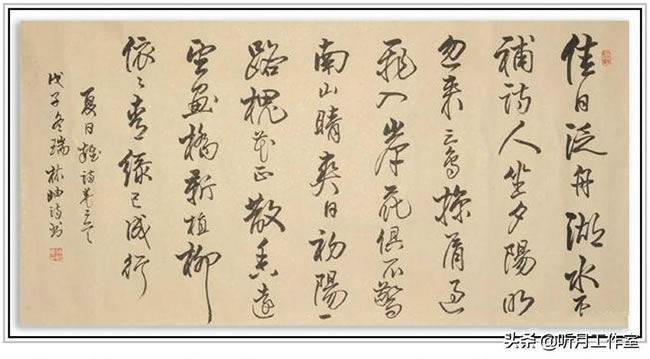 佳日泛舟湖水
補詩人坐夕陽明
忽来三鸟掠肩过
飛入岸花俱不驚
南山晴爽日初陽一
路槐花正散香遠
望画橋新植柳
依々青緑已成行
夏日雜詩
戊子冬瑞林
头条@听月工作室